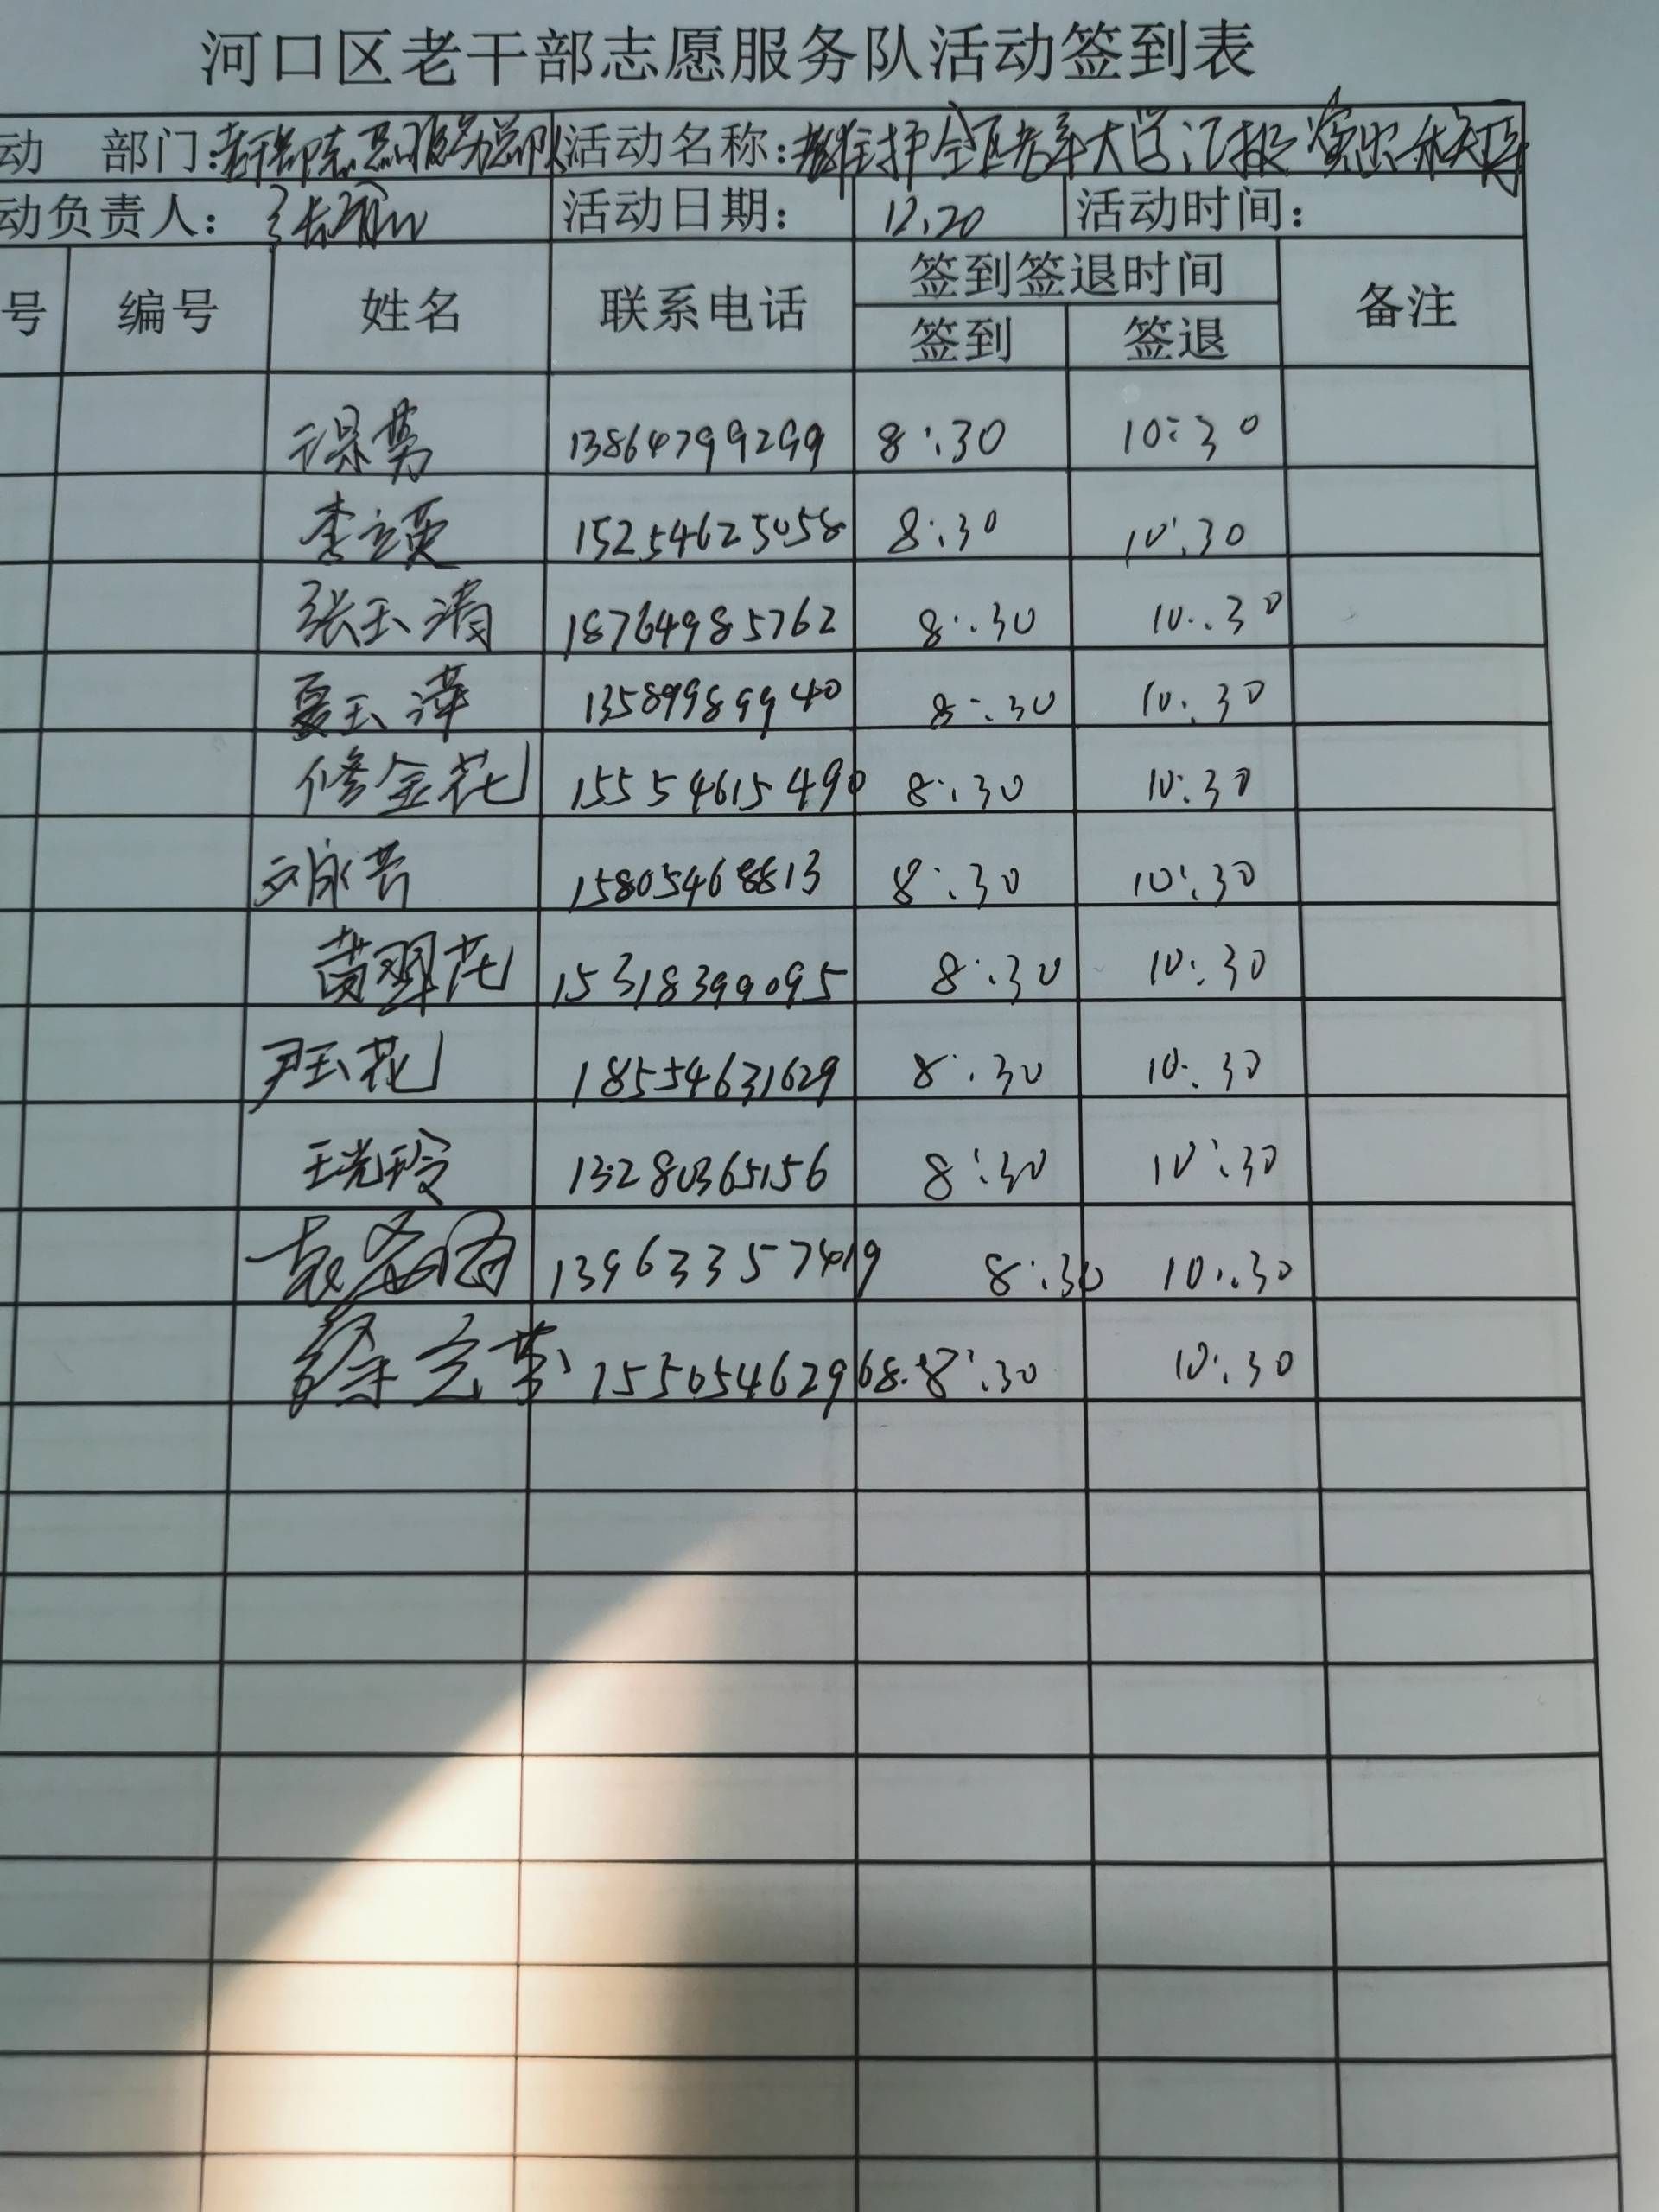 河口区老干部志愿服务队活动签到表
动 部门:老干部志愿服务总队 活动名称:维护全区老年大学汇报演出秩序
动负责人: 活动日期: 12.20 活动时间:
号 编号 姓名 联系电话 签到签退时间 备注
签到 签退
13864799299 8:30 10:30
李立英 15254625058 8:30 10:30
张玉清 18764985762 8:30 10:30
夏玉萍 13589989940 8:30 10:30
修金花 15554615490 8:30 10:30
15805468813 8:30 10:30
黄翠花 15318399095 8:30 10:30
尹玉花 18554631629 8:30 10:30
王光玲 13280365156 8:30 10:30
13963357419 8:30 10:30
徐立英 15505462968. 8:30 10:30